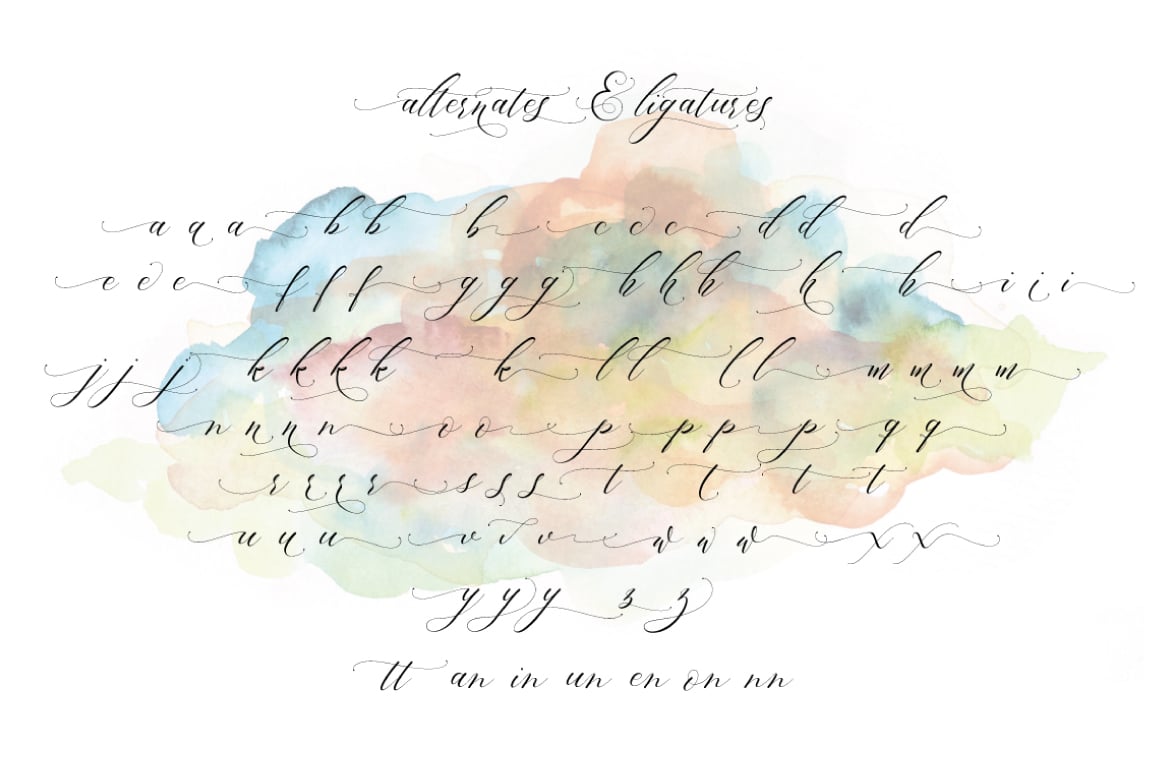 alternates & ligatures
a a a b b b c c c d d d
e e e f f f g g g h h h h h i i i
j j j k k k k k l l l l m m m m
n n n n o o p p p p q q
r r r r s s s t t t t
u u u v v v w w w x x
y y y z z
tt an in un en on nn